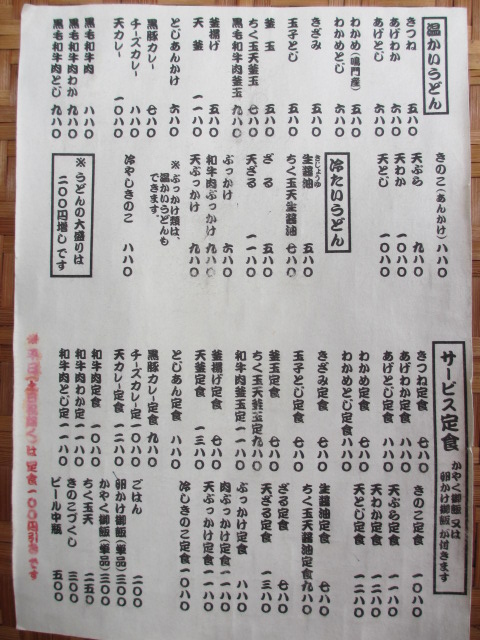 温かいうどん
きつね 五八〇
あげわか 六八〇
あげとじ 六八〇
わかめ(鳴門産) 五八〇
わかめとじ 六八〇
きざみ 五八〇
玉子とじ 五八〇
釜玉 五八〇
ちく玉天釜玉 七八〇
黒毛和牛肉釜玉 九八〇
釜揚げ 五八〇
天釜 一一八〇
とじあんかけ 六八〇
黒豚カレー 七八〇
チーズカレー 八八〇
天カレー 一〇八〇
黒毛和牛肉 八八〇
黒毛和牛肉わか 九八〇
黒毛和牛肉とじ 九八〇
きのこ(あんかけ) 八八〇
天ぷら 九八〇
天わか 一〇八〇
天とじ 一〇八〇
冷たいうどん
生醤油 五八〇
きじょうゆ
ちく玉天生醤油 七八〇
ざる 五八〇
天ざる 一一八〇
ぶっかけ 六八〇
和牛肉ぶっかけ 九八〇
天ぶっかけ 九八〇
※ぶっかけ類は、
温かいうどんも
できます。
冷やしきのこ 八八〇
※うどんの大盛りは
二〇〇円増しです
サービス定食 かやく御飯 又は
卵かけ御飯 が付きます
きつね定食 七八〇
あげわか定食 八八〇
あげとじ定食 八八〇
わかめ定食 七八〇
わかめとじ定食 八八〇
きざみ定食 七八〇
玉子とじ定食 七八〇
釜玉定食 七八〇
ちく玉天釜玉定 九八〇
和牛肉釜玉定 一一八〇
釜揚げ定食 七八〇
天釜定食 一三八〇
とじあん定食 八八〇
黒豚カレー定食 九八〇
チーズカレー定 一〇八〇
天カレー定食 一二八〇
和牛肉定食 一〇八〇
和牛肉わか定 一一八〇
和牛肉とじ定 一一八〇
きのこ定食 一〇八〇
天ぷら定食 一一八〇
天わか定食 一二八〇
天とじ定食 一二八〇
生醤油定食 七八〇
ちく玉天醤油定食 九八〇
ざる定食 七八〇
天ざる定食 一三八〇
ぶっかけ定食 八八〇
肉ぶっかけ定食 一一八〇
天ぶっかけ定食 一一八〇
冷しきのこ定食 一〇八〇
ごはん 二〇〇
卵かけ御飯(単品) 三〇〇
かやく御飯(単品) 三〇〇
ちく玉天 二五〇
きのこづくし 三〇〇
ビール中瓶 五〇〇
は定食一〇〇円引きです